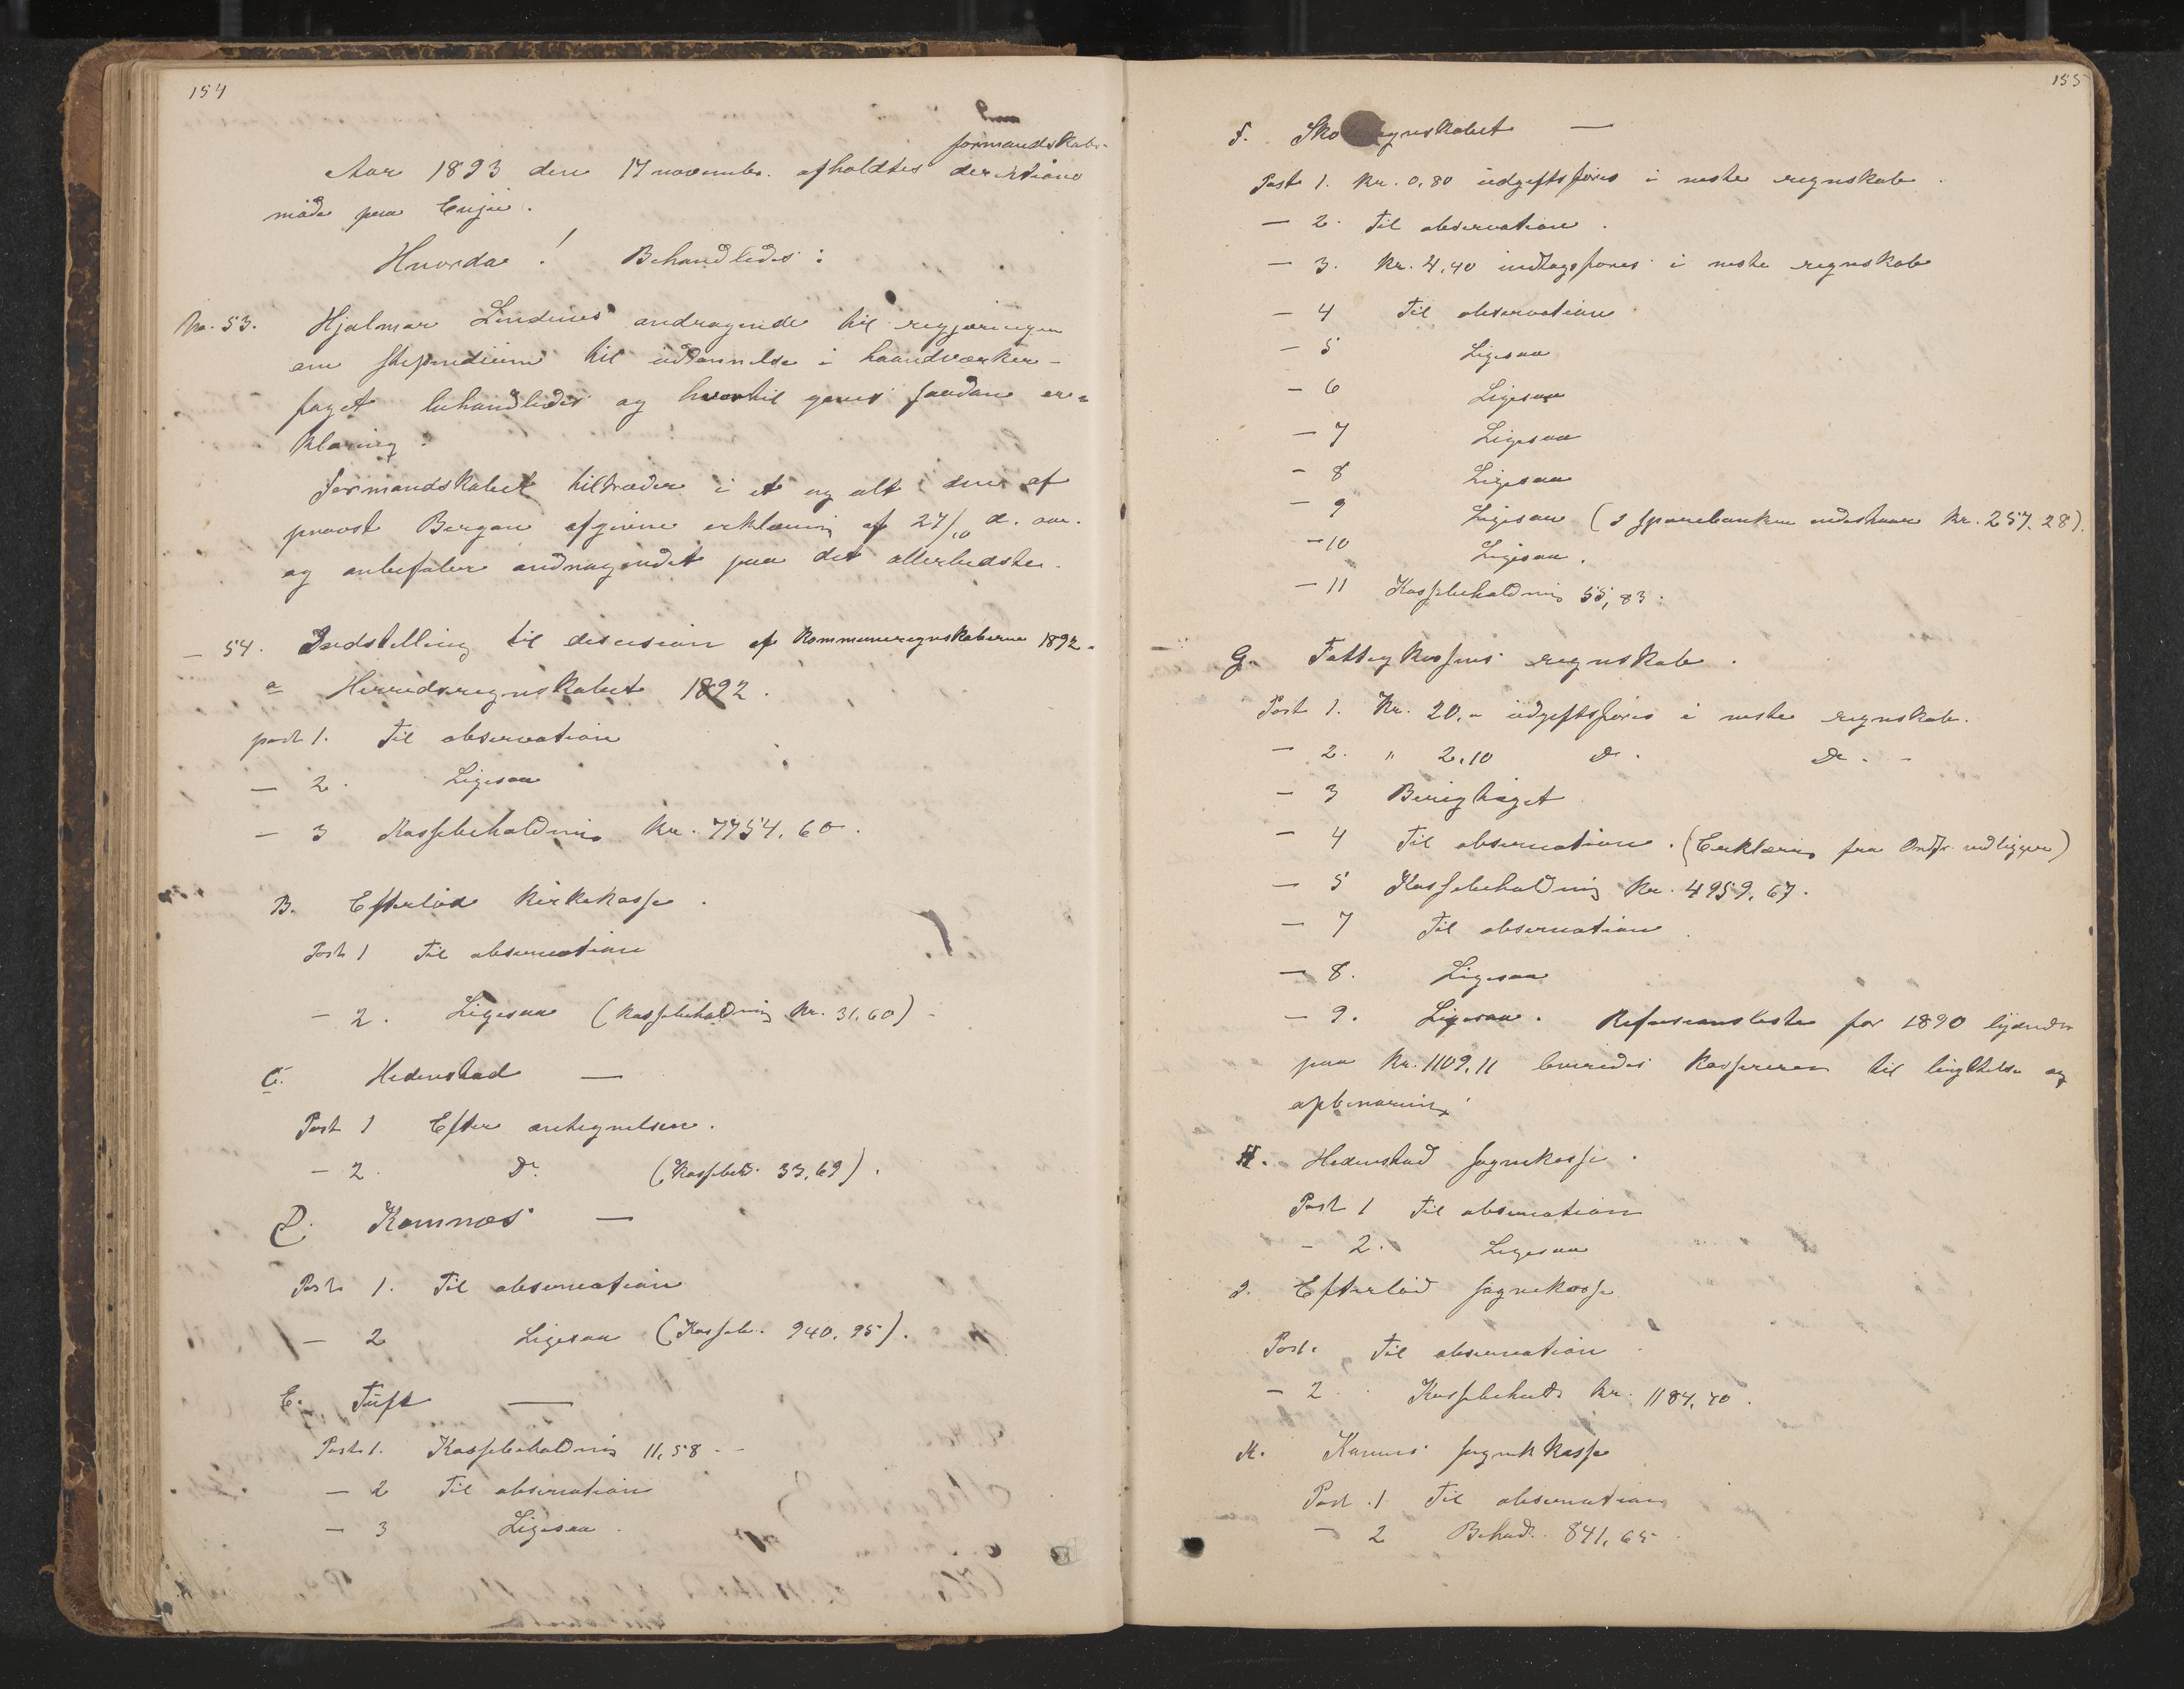 154
formandskabs-
Aar 1893 den 17 novembr. afholdtes
møde paa Enger.
Hvorda! Behandledes:
No. 53. Hjalmar Lindnes andragende til regjeringen
om stipendium til uddannelse i haandværker-
faget behandledes og hvortil gaves saadan er-
klæring:
Formandskabet tiltræder i et og alt den af
provst Bergan afgivne erklæring af 27/10 d. aar.
og anbefaler andragendet paa det allerbedste.
— 54. Indstilling til desision af Kommuneregnskaberne 1892.
a Herredsregnskabet 1892.
post 1. Til observation
— 2. Ligesaa
— 3 Kassebeholdning kr. 7754,60.
B. Efterløds kirkekasse.
Post 1 Til observation
— 2. Ligesaa (Kassebeholdning kr. 31,60)
C. Hedenstad —
Post 1 Efter antegnelsen.
— 2. Do (Kassebeh. 33,69).
D. Komnæs —
Post 1. Til observation
— 2 Ligesaa (Kasseb. 940,95).
E. Tuft —
Post 1. Kassebeholdning 11,58 -
— 2 Til observation
— 3 Ligesaa
155
F. Skoleregnskabet —
Post 1. Kr. 0,80 udgiftsføres i neste regnskab.
— 2. Til observation.
— 3. Kr. 4,40 indtægsføres i neste regnskab
— 4 Til observation
— 5 Ligesaa
— 6 Ligesaa
— 7 Ligesaa
— 8 Ligesaa
— 9 Ligesaa (I sparebanken indestaar kr. 257,28).
— 10 Ligesaa.
— 11 Kassebeholdning 55,83.
G. Fattigkassens regnskab.
Post 1. Kr. 20,- udgiftsføres i neste regnskab.
— 2. " 2,10 Do. Do. -
— 3 Berigtiget
— 4 Til observation. (Erklæring fra Ordfr. vedligger)
— 5 Kassebeholdning kr. 4959,67.
— 7 Til observation
— 8. Ligesaa
— 9. Ligesaa. Refusionsliste for 1890 lydende
paa kr. 1109,11 leveredes kassereren til
H. Hedenstad sognekasse.
Post 1 Til observation
- 2. Ligesaa
I. Efterløds sognekasse
Post. Til observation
— 2. Kassebehold. kr. 1184,40.
K. Komnes sognekkasse
Post. 1 Til observation
— 2 Behold. 841,65